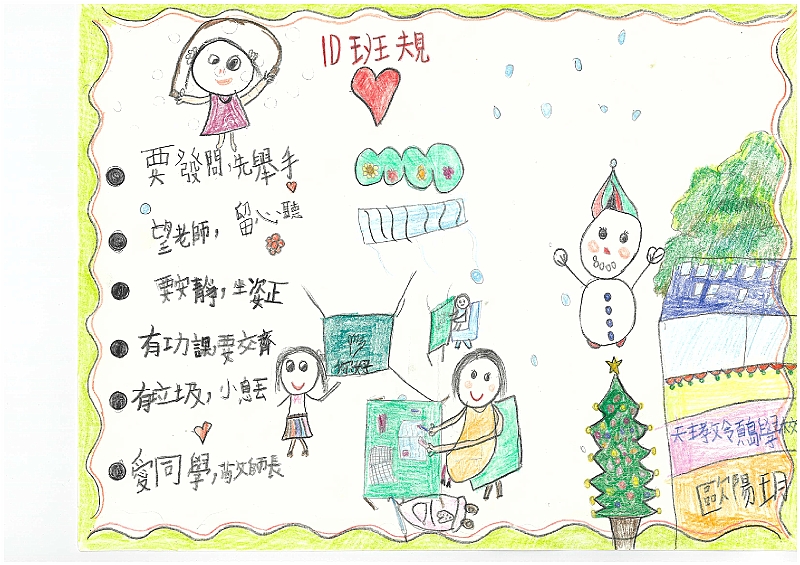 1D班規
要發問,先舉手
望老師,留心聽
要安靜,坐姿正
有功課,要交齊
有垃圾,小息丟
愛同學,敬師長
天主教領島學校
歐陽玥